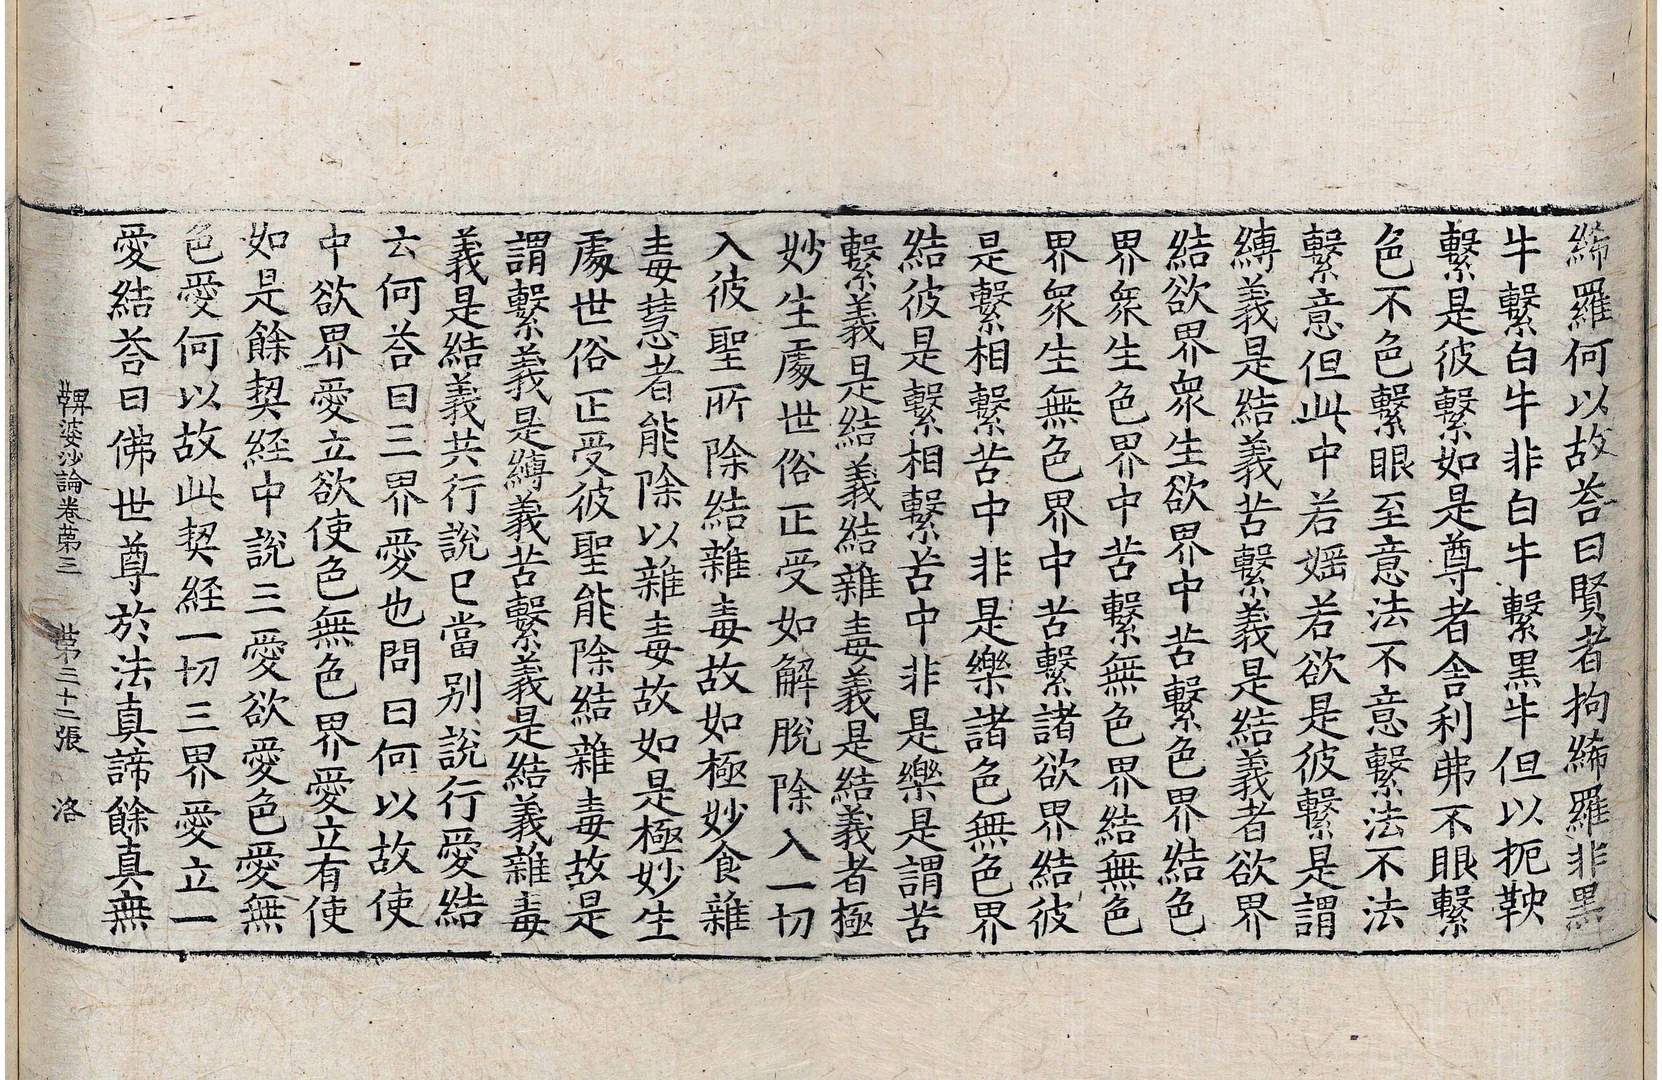 絺羅何以故荅曰賢者拘絺羅非黑
牛繫白牛非白牛繫黑牛但以扼鞅
繫是彼繫如是尊者舍利弗不眼繫
色不色繫眼至意法不意繫法不法
繫意但此中若婬若欲是彼繫是謂
縛義是結義苦繫義是結義者欲界
結欲界衆生欲界中苦繫色界結色
界衆生色界中苦繫無色界結無色
界衆生無色界中苦繫諸欲界結彼
是繫相繫苦中非是樂諸色無色界
結彼是繫相繫苦中非是樂是謂苦
繫義是結義結雜毒義是結義者極
妙生處世俗正受如解脫除入一切
入彼聖所除結雜毒故如極妙食雜
毒慧者能除以雜毒故如是極妙生
處世俗正受彼聖能除結雜毒故是
謂繫義是縛義苦繫義是結義雜毒
義是結義共行說已當别說行愛結
云何荅曰三界愛也問曰何以故使
中欲界愛立欲使色無色界愛立有使
如是餘契經中說三愛欲愛色愛無
色愛何以故此契經一切三界愛立一
愛結荅曰佛世尊於法真諦餘真無
鞞婆沙論卷第三　第三十二張　洛